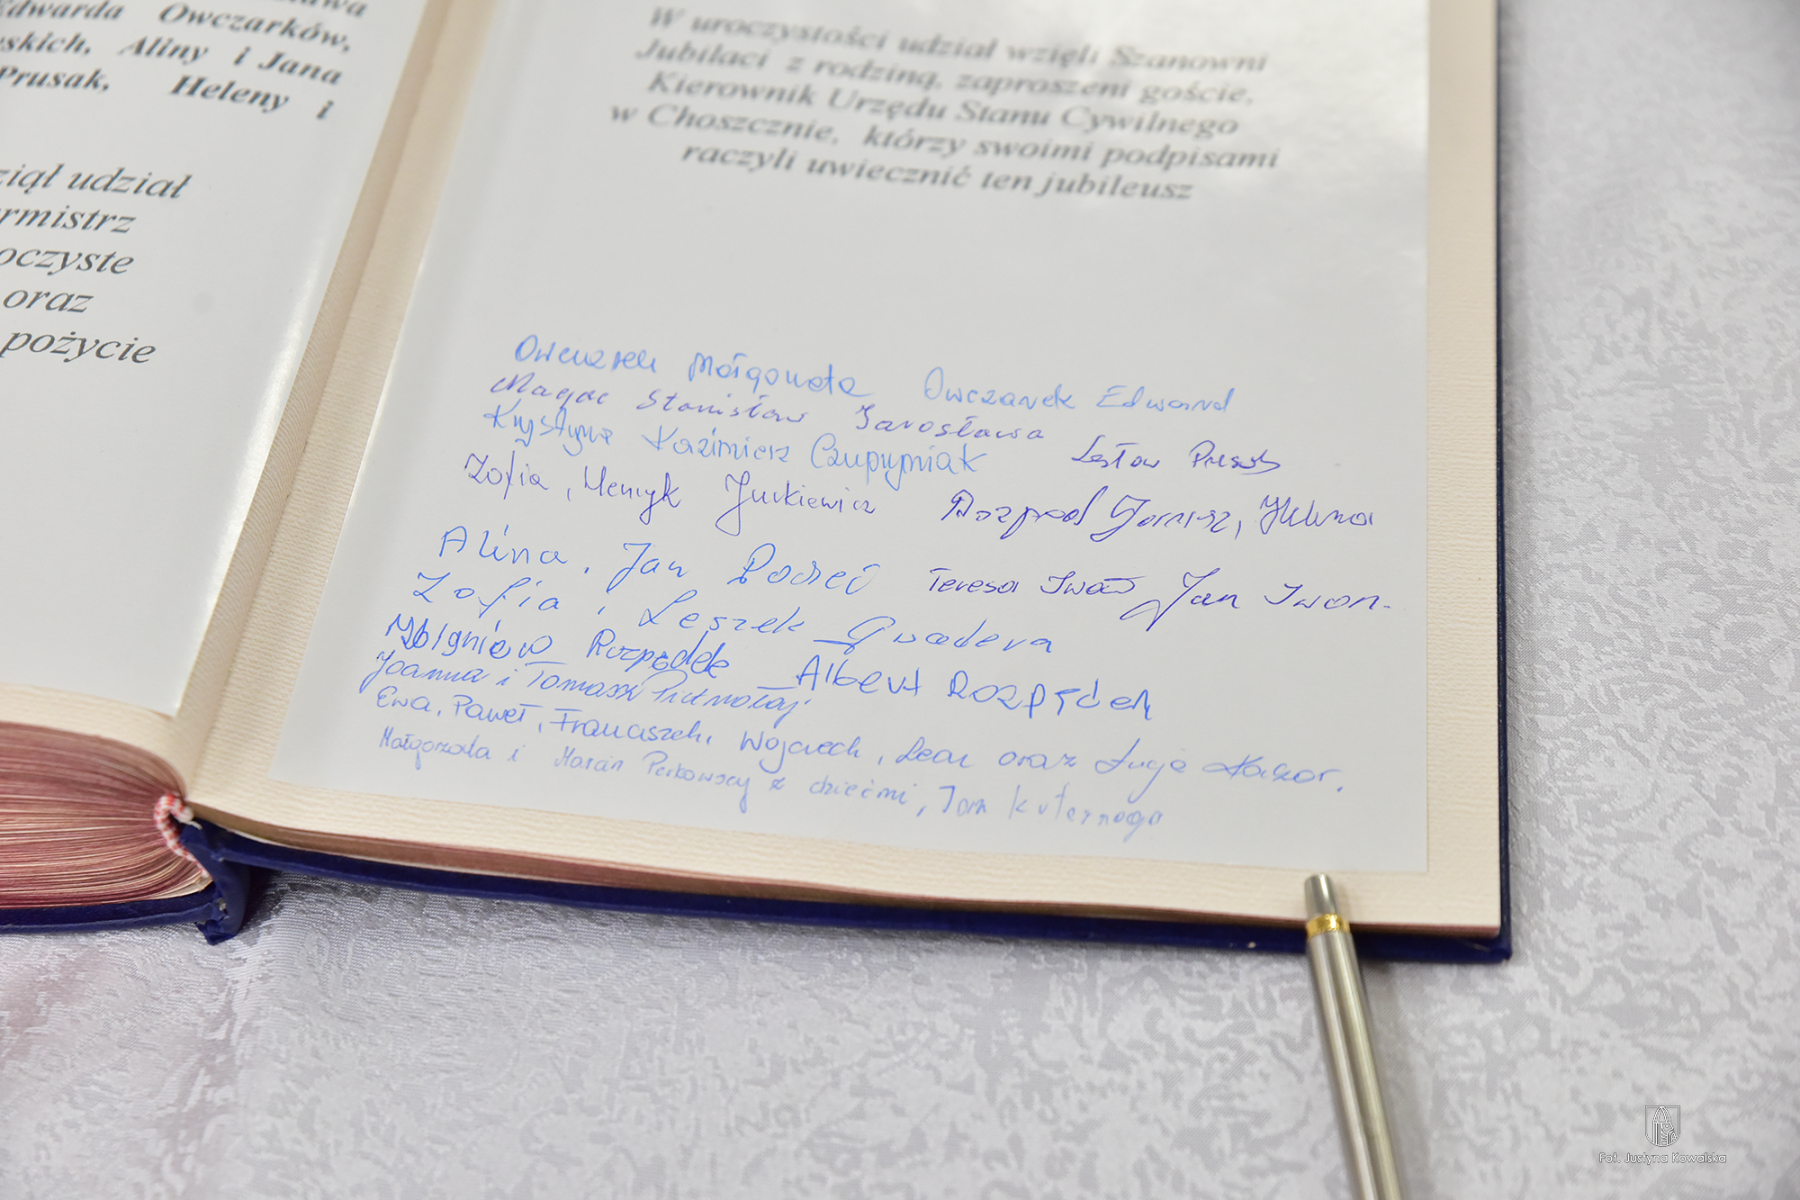 Edwarda Owczarków,
skich, Aliny i Jana
Prusak, Heleny i
ziął udział
rmistrz
oczyste
oraz
pożycie
W uroczystości udział wzięli Szanowni
Jubilaci z rodziną, zaproszeni goście,
Kierownik Urzędu Stanu Cywilnego
w Choszcznie, którzy swoimi podpisami
raczyli uwiecznić ten jubileusz
Owczarek Małgorzata Owczarek Edward
Stanisław Jarosława Prusak
Krystyna Kazimierz Czupryniak
Zofia, Henryk Jurkiewicz Helena
Alina, Jan Teresa Jan Iwan
Zofia i Leszek Gwadera
Zbigniew Rozpędek Albert Rozpędek
Joanna i Tomasz
Ewa, Paweł, Franciszek, Wojciech, Lean oraz Łucja
Małgorzata i Marcin Perkowscy z dziećmi, Jan Kuternoga
Fot. Justyna Kowalska